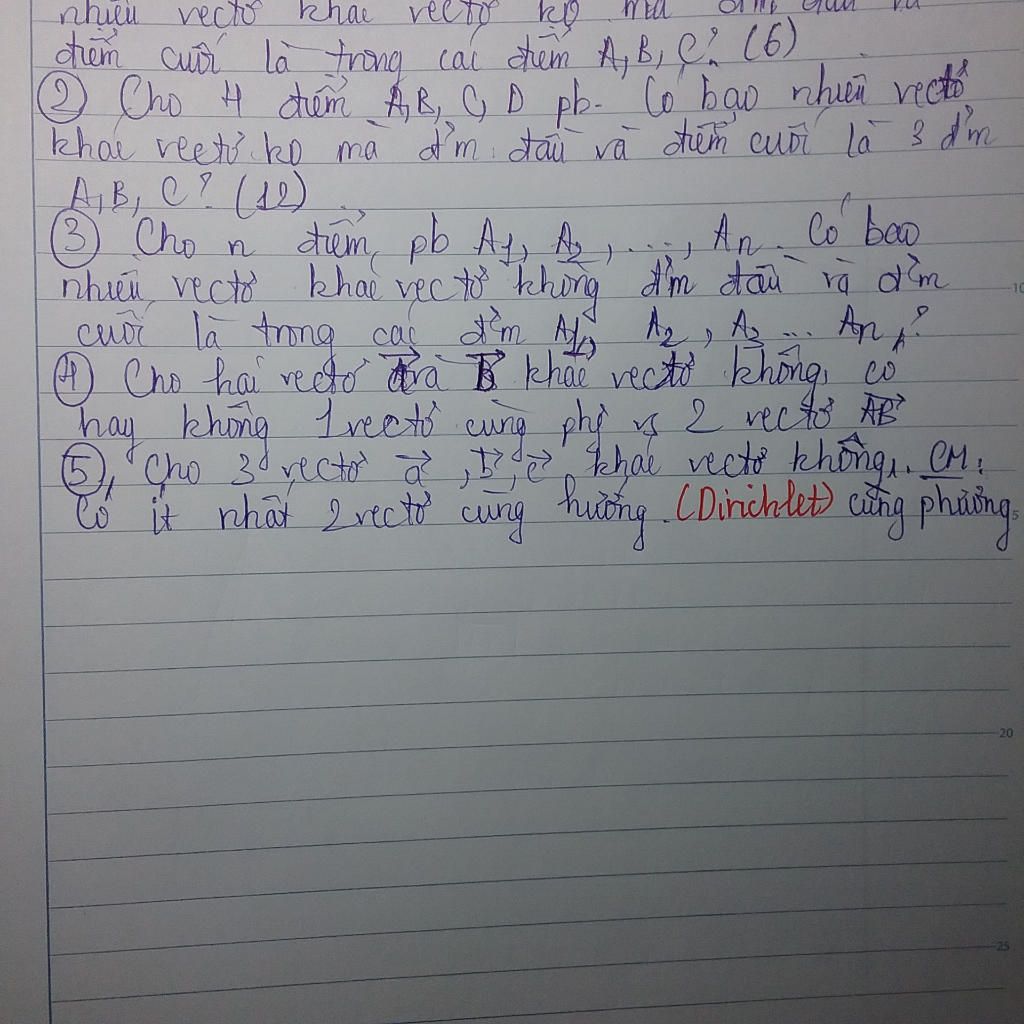 nhiêu vectơ khác vectơ ko mà
điểm cuối là trong các điểm A, B, C? (6)
② Cho 4 điểm A, B, C, D pb. Có bao nhiêu vectơ
khác vectơ ko mà đ'm đầu và điểm cuối là 3 đ'm
A, B, C? (12)
③ Cho n điểm pb A1, A2, ..., An. Có bao
nhiêu vectơ khác vectơ không đ'm đầu và đ'm
cuối là trong các đ'm A1, A2, A3 ... An?
④ Cho hai vectơ a và b khác vectơ không, có
hay không 1 vectơ cùng phg vs 2 vectơ AB
⑤, Cho 3 vectơ a, b, c khác vectơ không. CM:
Có ít nhất 2 vectơ cùng hướng. (Dirichlet) cùng phương.
10
5
20
25